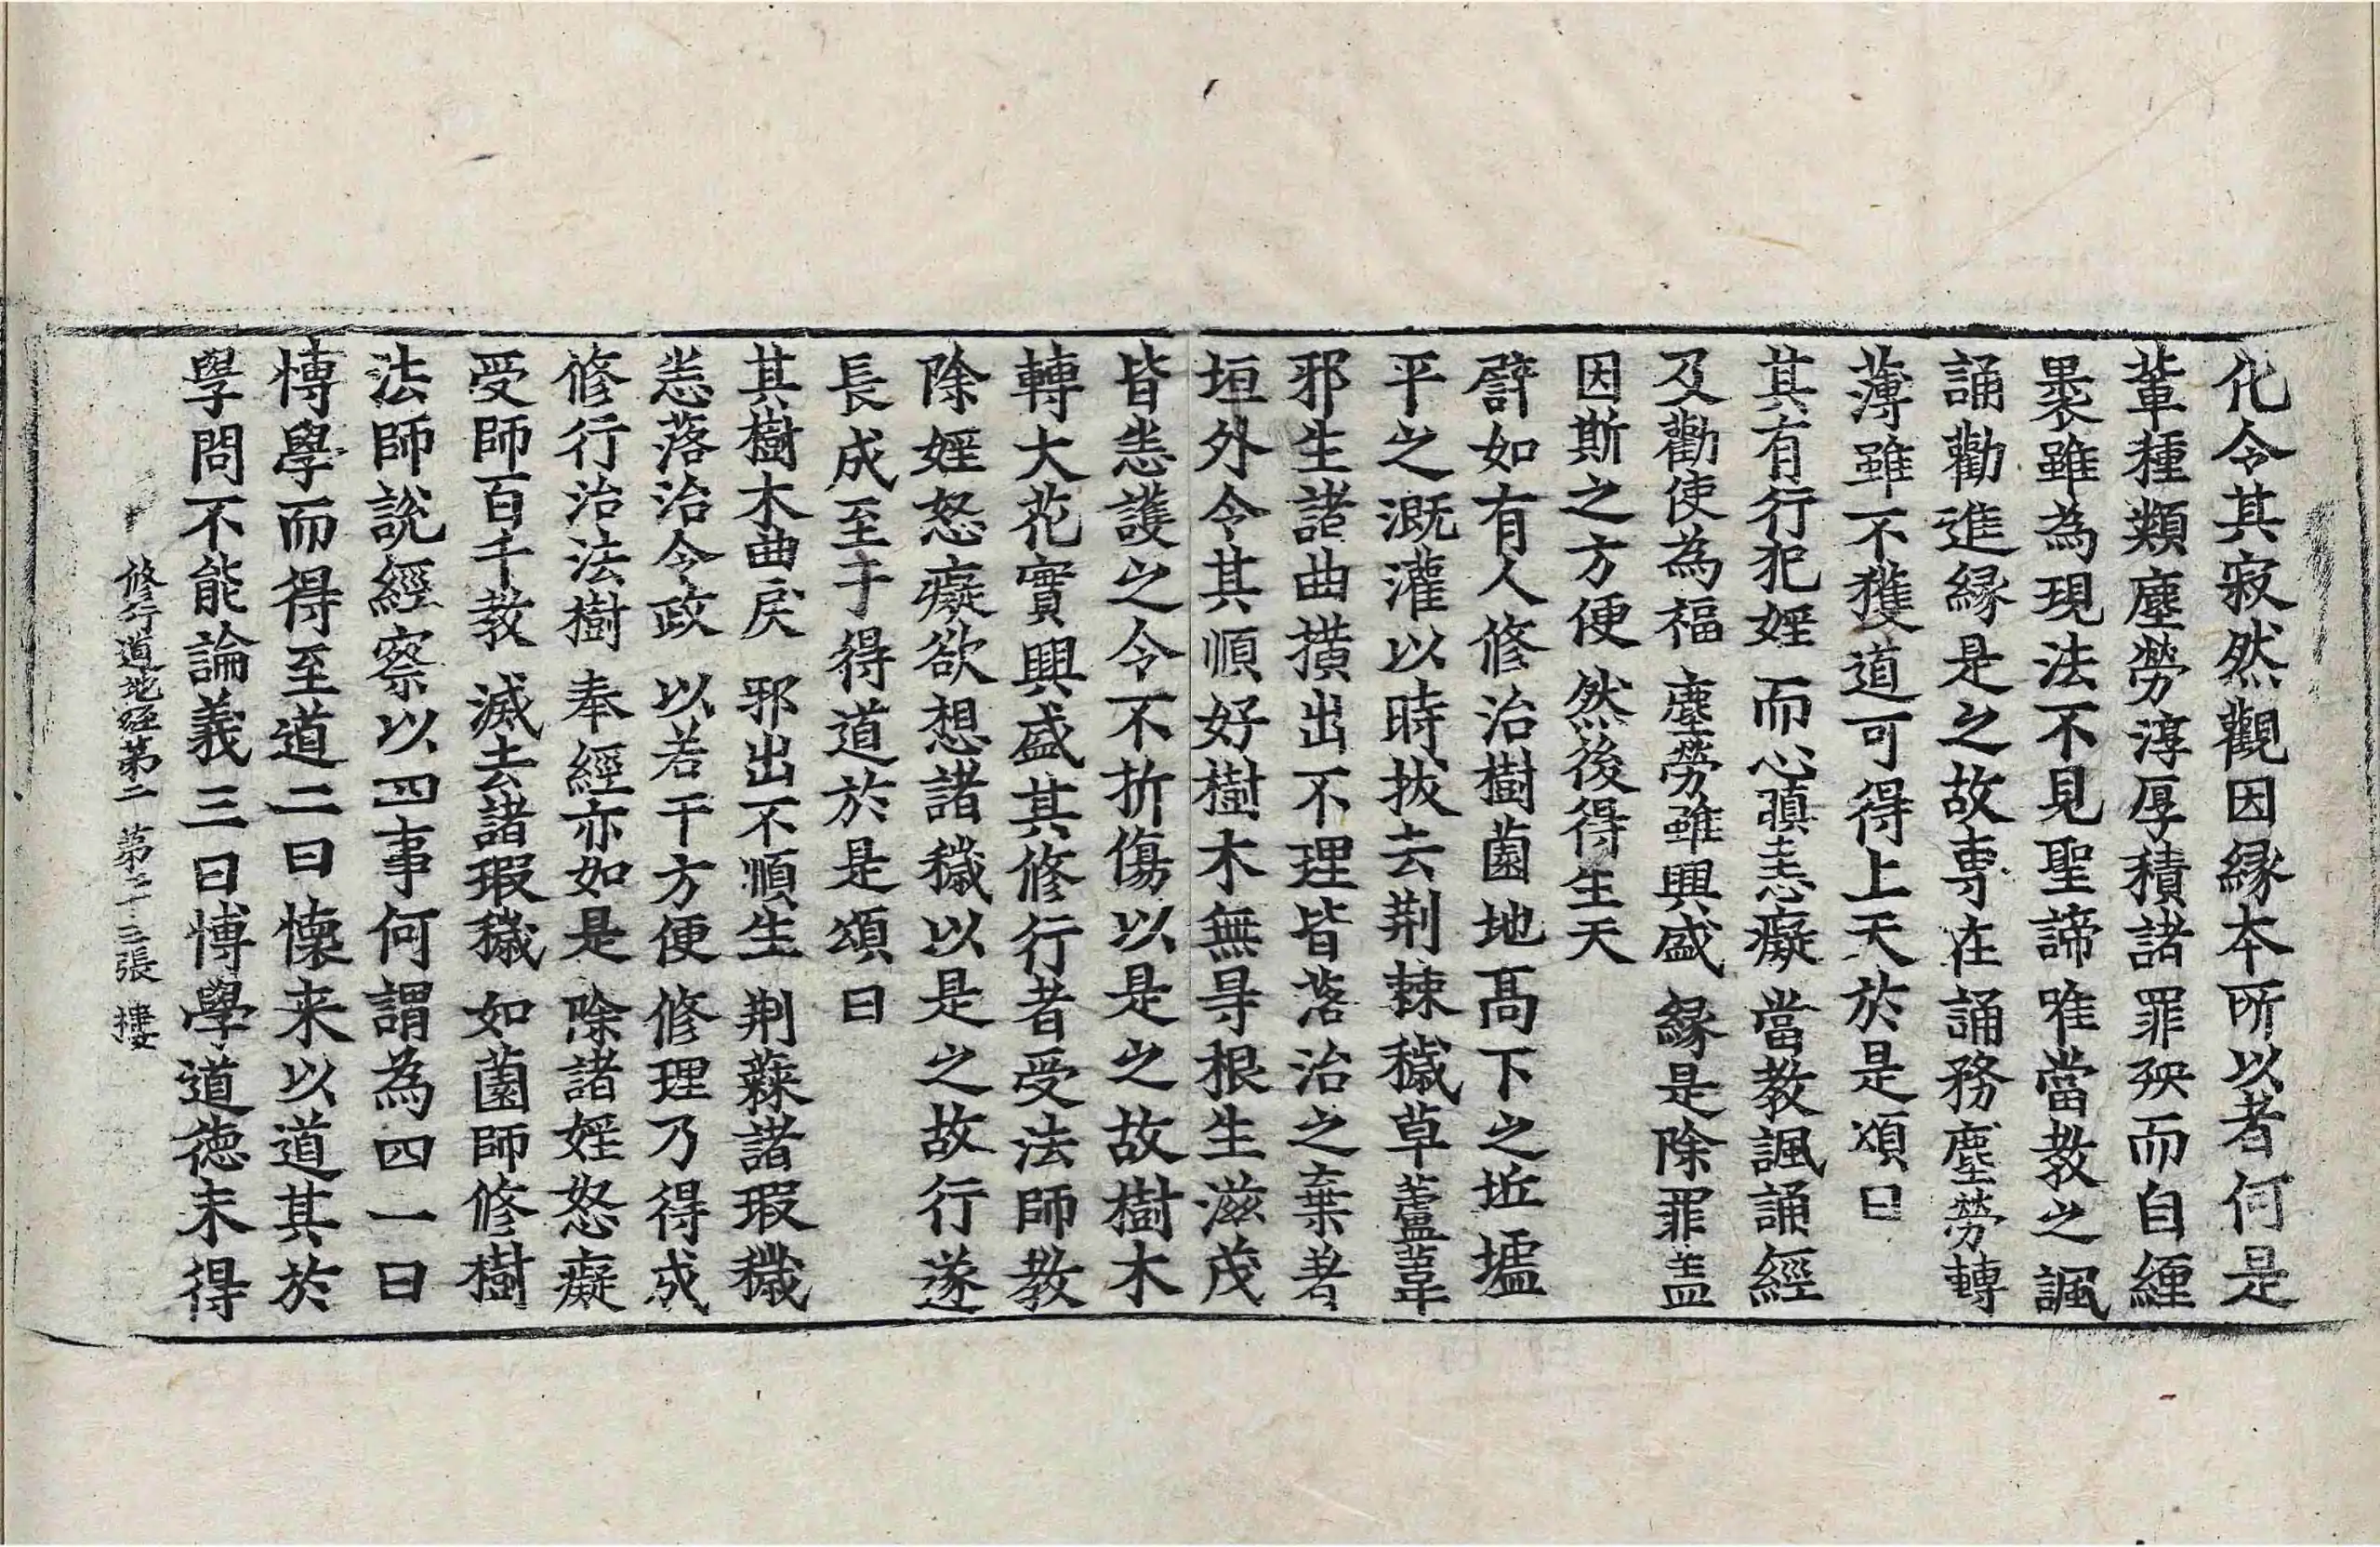 化令其寂然觀因緣本所以者何是
輩種類塵勞淳厚積諸罪殃而自纏
裹雖為現法不見聖諦唯當教之諷
誦勸進縁是之故專在誦務塵勞轉
薄雖不獲道可得上天於是頌曰
其有行犯婬　而心瞋恚癡　當教諷誦經
及勸使為福　塵勞雖興盛　縁是除罪盖
因斯之方便　然後得生天
譬如有人修治樹薗地髙下之坵壚
平之溉灌以時拔去荆棘穢草蘆葦
邪生諸曲撗出不理皆落治之棄著
垣外令其順好樹木無㝵根生滋茂
皆悉護之令不折傷以是之故樹木
轉大花實興盛其修行者受法師教
除婬怒癡欲想諸穢以是之故行遂
長成至于得道於是頌曰
其樹木曲戾　邪出不順生　荆蕀諸瑕穢
悉落治令政　以若干方便　修理乃得成
修行治法樹　奉經亦如是　除諸婬怒癡
受師百千教　滅去諸瑕穢　如薗師修樹
法師說經察以四事何謂為四一曰
博學而得至道二曰懐来以道其於
學問不能論義三曰博學道徳未得
修行道地經第二　第二十三張　樓